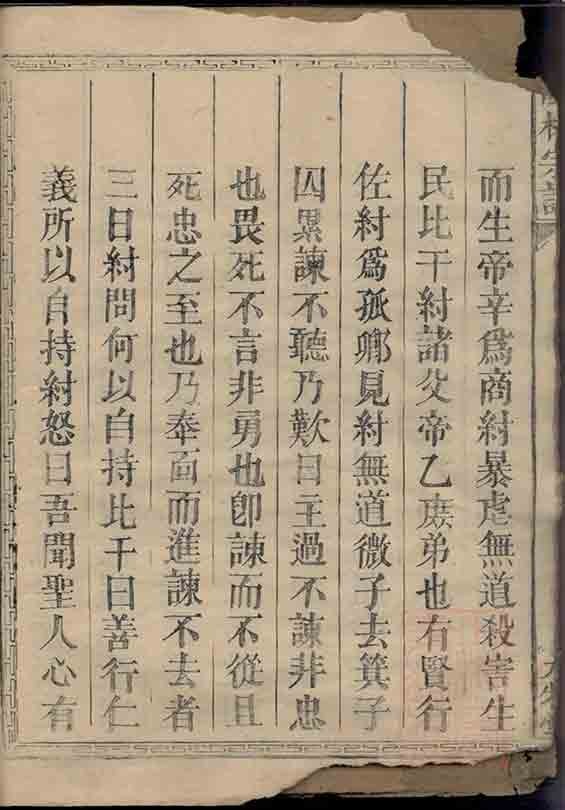 林宗譜
而生帝辛爲商紂暴虐無道殺害生
民比干紂諸父帝乙庶弟也有賢行
佐紂爲孤卿見紂無道微子去箕子
囚累諫不聽乃歎曰主過不諫非忠
也畏死不言非勇也卽諫而不從且
死忠之至也乃奉面而進諫不去者
三日紂問何以自持比干曰善行仁
義所以自持紂怒曰吾聞聖人心有